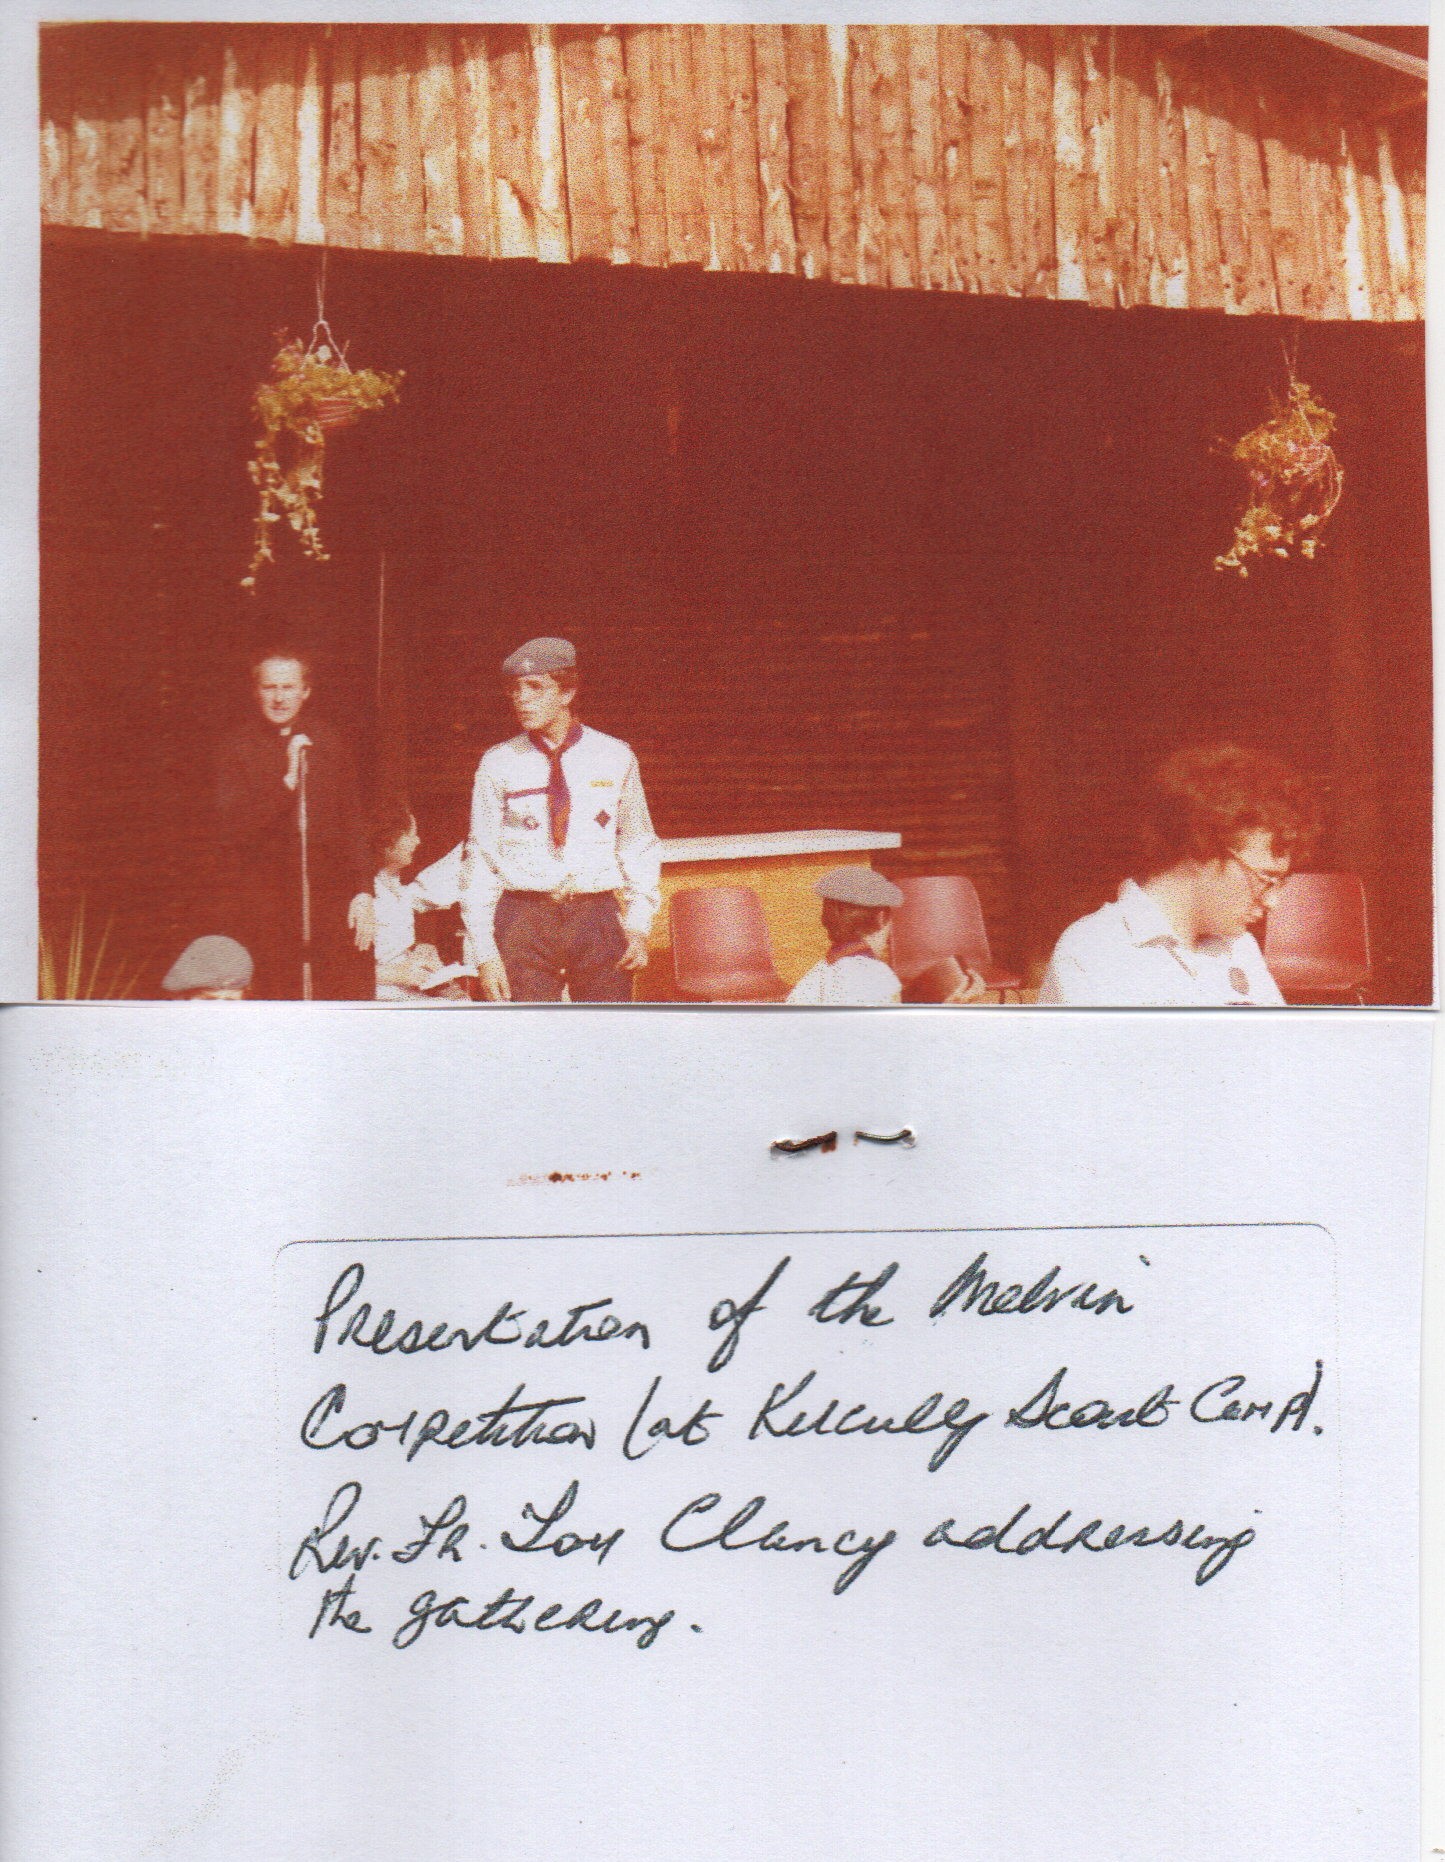 Presentation of the Melvin
Competition (at Kilcully Scout Camp.
Rev. Fr. Tom Clancy addressing
the gathering.